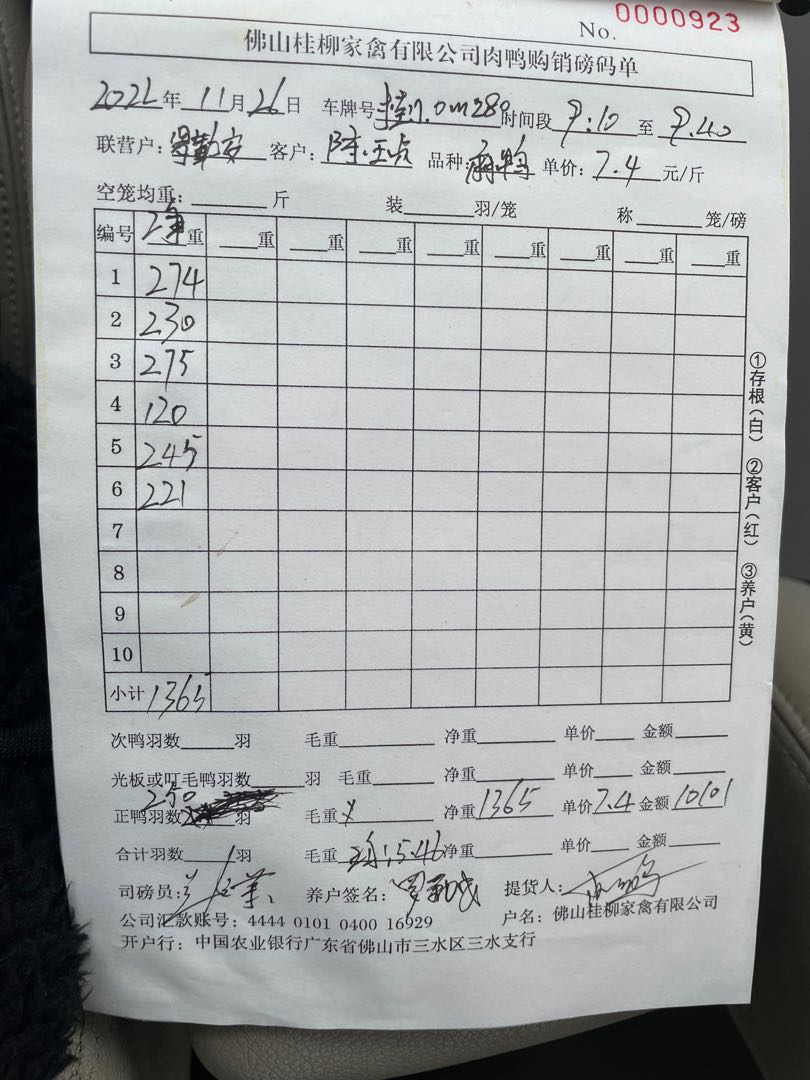 No. 0000923
佛山桂柳家禽有限公司肉鸭购销磅码单
2022年 11月26日 车牌号 时间段 9:10 至 9.40
联营户： 客户： 品种：麻鸭 单价：7.4 元/斤
空笼均重： 斤 装 羽/笼 称 笼/磅
编号 净重 重 重 重 重 重 重 重 重
1 274
2 230
3 275
4 120
5 245
6 221
7
8
9
10
小计 1365
①存根（白） ②客户（红） ③养户（黄）
次鸭羽数 羽 毛重 净重 单价 金额
光板或叮毛鸭羽数 羽 毛重 净重 单价 金额
正鸭羽数 250 羽 毛重 净重 1365 单价 7.4 金额 10101
合计羽数 羽 毛重 5.46 净重 单价 金额
司磅员： 养户签名： 提货人：
公司汇款账号：4444 0101 0400 16929 户名：佛山桂柳家禽有限公司
开户行：中国农业银行广东省佛山市三水区三水支行